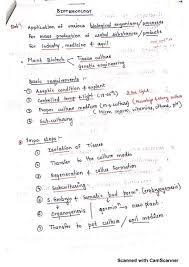 BIOTECHNOLOGY
Def" Application of various biological organisms/processes
For mass production of useful substances/products
for Industry, medicine & agri.
Plant Biotech - Tissue culture
Genetic engineering
Basic requirements -
① Aseptic condition & explant
② Controlled temp & light
③ Proper culture medium
④ Subculturing
Impo steps :-
① Isolation of Tissue
② Transfer to the culture media
③ Regeneration & callus formation
④ Subculturing
⑤ S. Embryo & Somatic
⑥ Organogenesis
⑦ Transfer to pot culture / soil medium
Scanned with CamScanner